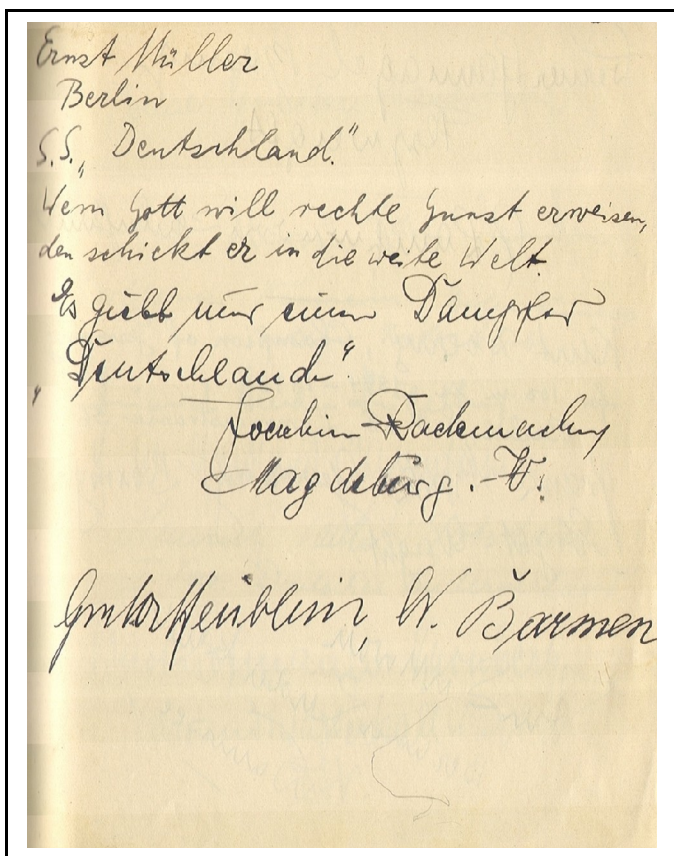 Ernst Müller
Berlin
S.S. „Deutschland."
Wem Gott will rechte Gunst erweisen,
den schickt er in die weite Welt.
Es giebt nur einen Dampfer
„Deutschland".
Joachim Rademacher
Magdeburg.-W.
W. Barmen